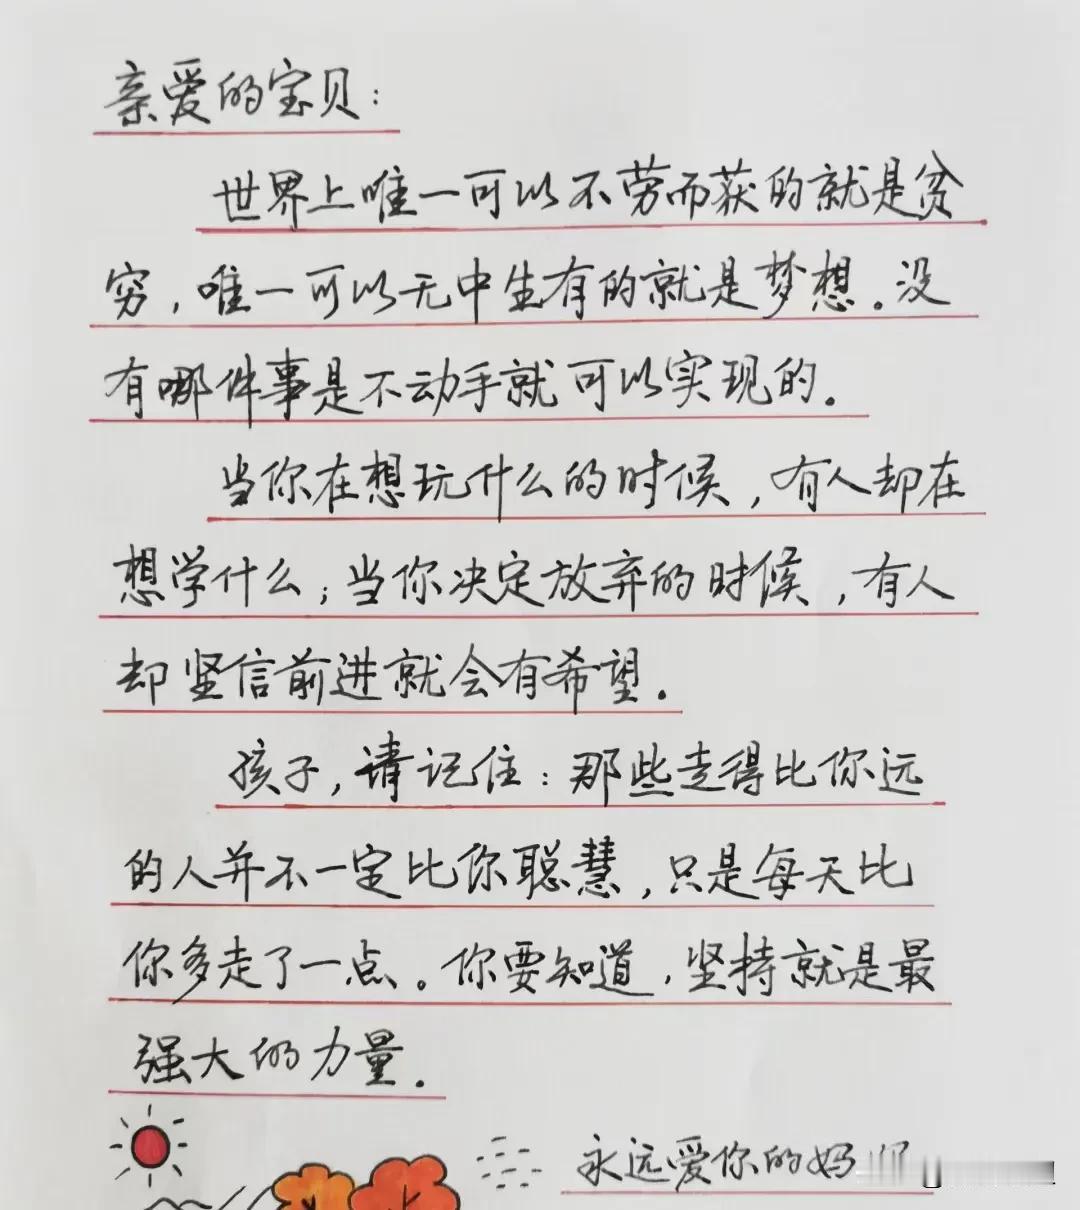 亲爱的宝贝：
世界上唯一可以不劳而获的就是贫
穷，唯一可以无中生有的就是梦想。没
有哪件事是不动手就可以实现的。
当你在想玩什么的时候，有人却在
想学什么；当你决定放弃的时候，有人
却坚信前进就会有希望。
孩子，请记住：那些走得比你远
的人并不一定比你聪慧，只是每天比
你多走了一点。你要知道，坚持就是最
强大的力量。
永远爱你的妈